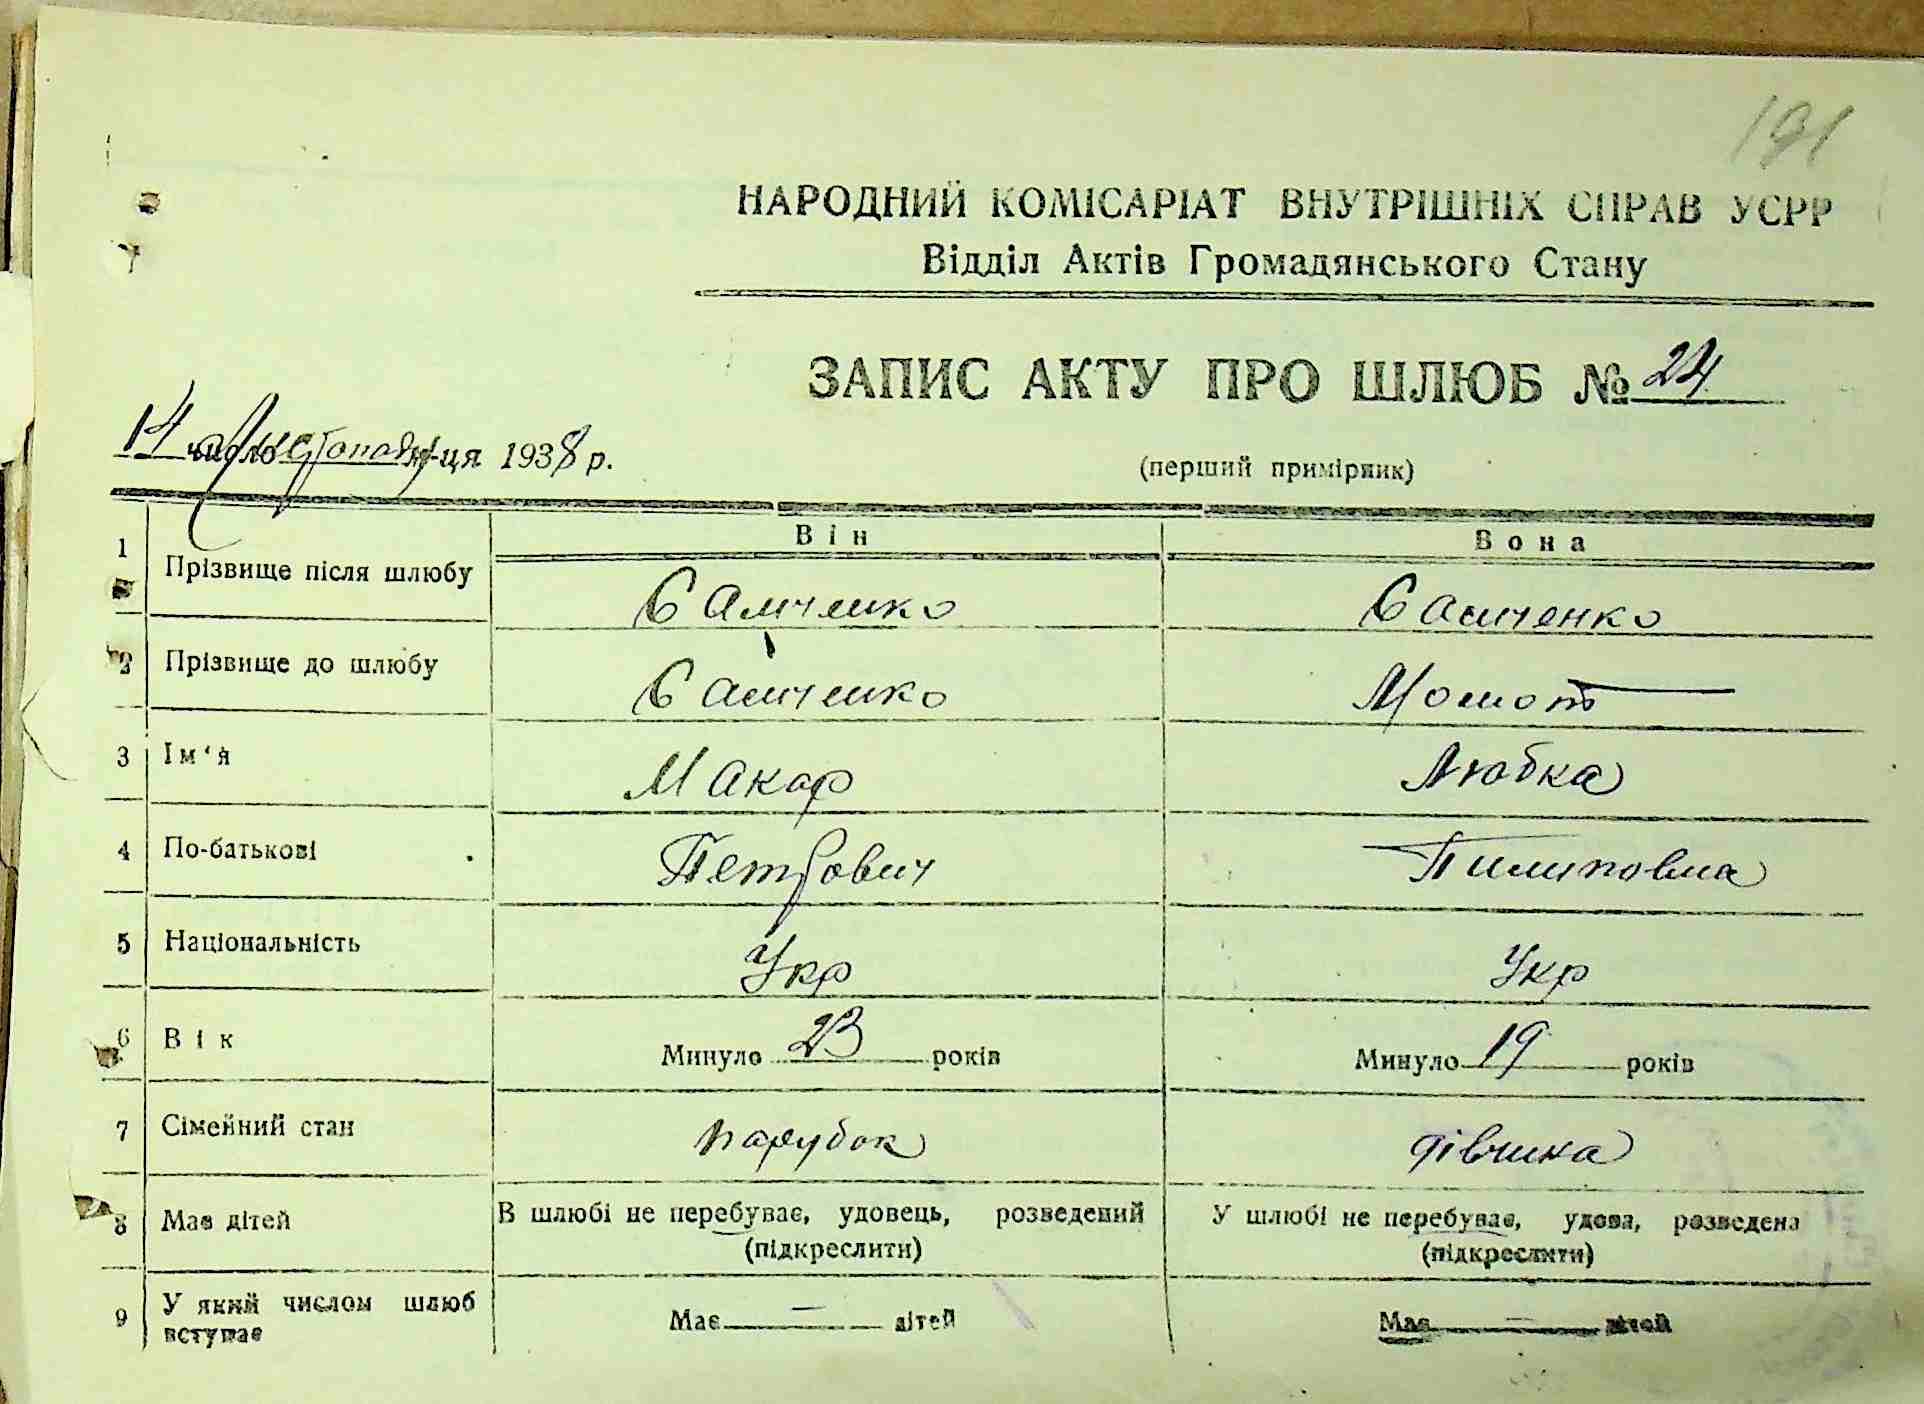 191
НАРОДНИЙ КОМІСАРІАТ ВНУТРІШНІХ СПРАВ УСРР
Відділ Актів Громадянського Стану
ЗАПИС АКТУ ПРО ШЛЮБ № 24
14 числа Листопада м-ця 1938 р.
(перший примірник)
Він Вона
1 Прізвище після шлюбу Самченко Самченко
2 Прізвище до шлюбу Самченко
3 Ім'я Макар Любка
4 По-батькові Петрович Пилиповна
5 Національність Укр Укр
6 Вік Минуло 23 років Минуло 19 років
7 Сімейний стан парубок дівчина
8 Має дітей В шлюбі не перебуває, удовець, розведений У шлюбі не перебуває, удова, розведена
(підкреслити) (підкреслити)
9 У який числом шлюб Має — дітей Має — дітей
вступає